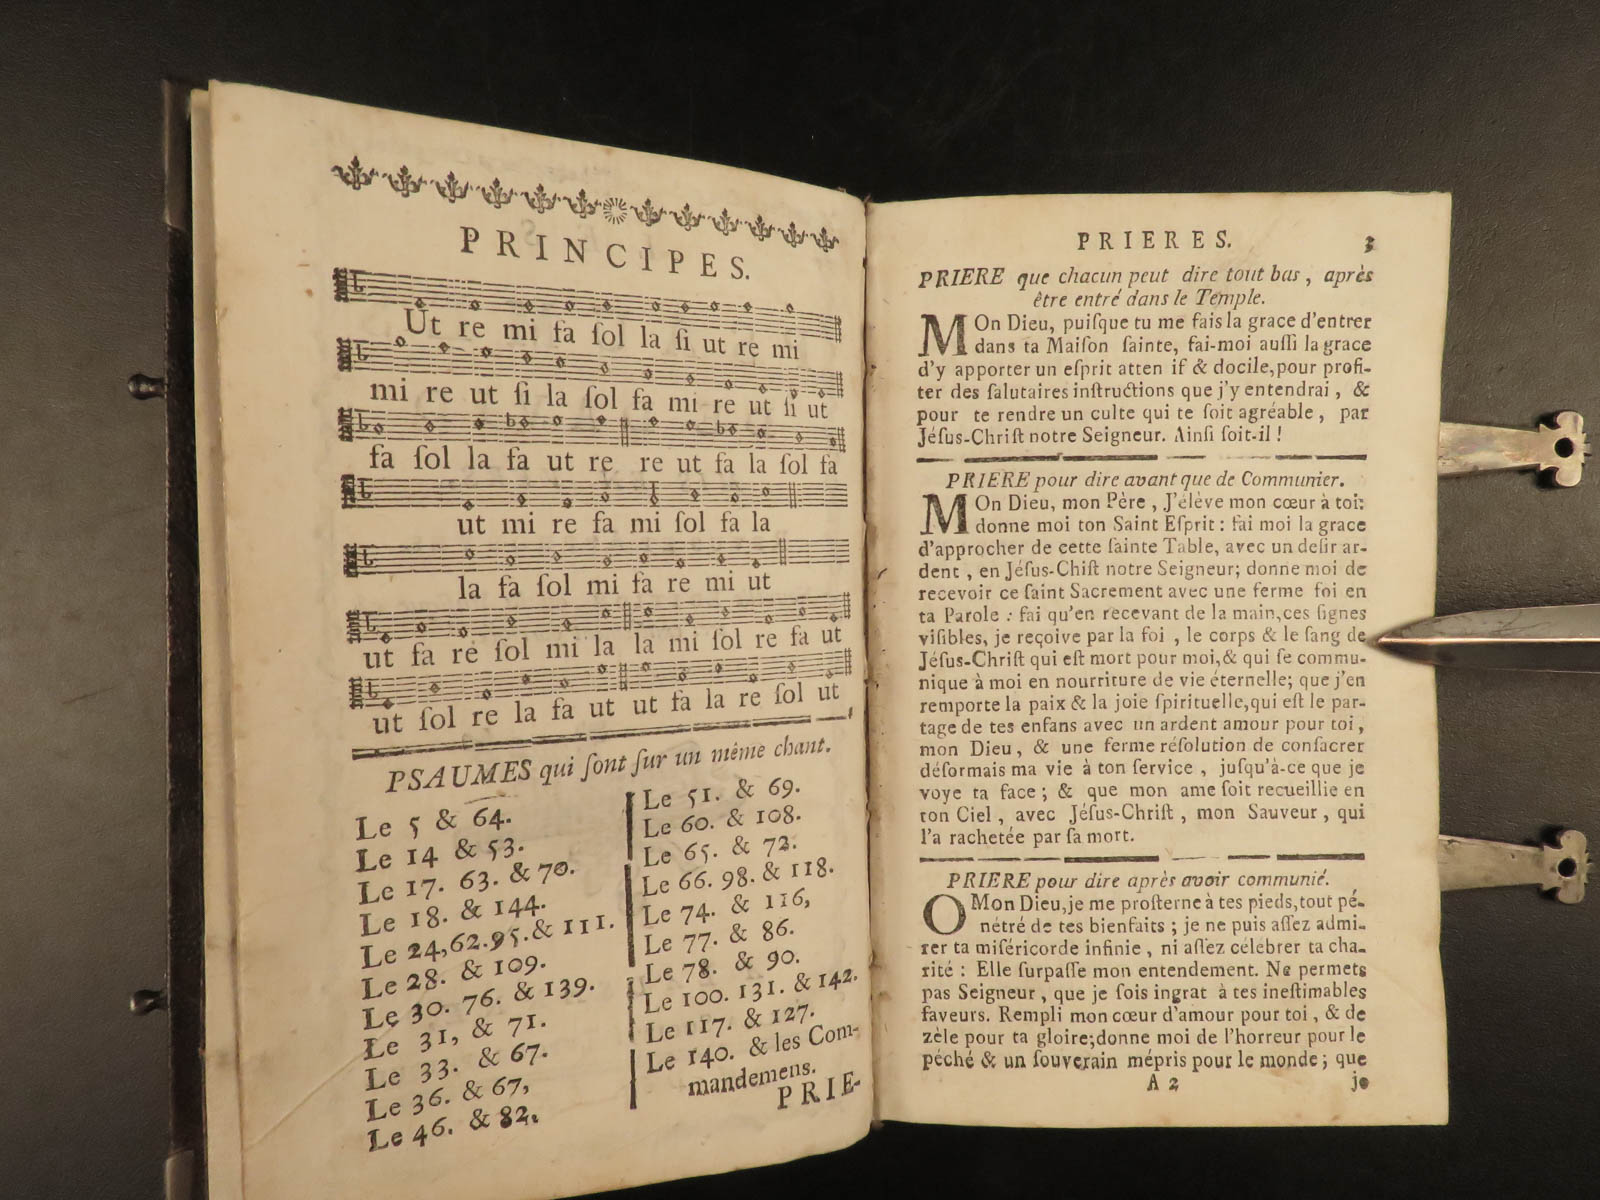 PRINCIPES.
Ut re mi fa ſol la ſi ut re mi
mi re ut ſi la ſol fa mi re ut ſi ut
fa ſol la fa ut re re ut fa la ſol fa
ut mi re fa mi ſol fa la
la fa ſol mi fa re mi ut
ut fa re ſol mi la la mi ſol re fa ut
ut ſol re la fa ut ut fa la re ſol ut
PSAUMES qui ſont ſur un même chant.
Le 5 & 64.
Le 14 & 53.
Le 17. 63. & 70.
Le 18. & 144.
Le 24,62.95.& 111.
Le 28. & 109.
Le 30. 76. & 139.
Le 31, & 71.
Le 33. & 67.
Le 36. & 67,
Le 46. & 82.
Le 51. & 69.
Le 60. & 108.
Le 65. & 72.
Le 66. 98. & 118.
Le 74. & 116,
Le 77. & 86.
Le 78. & 90.
Le 100. 131. & 142.
Le 117. & 127.
Le 140. & les Com-
mandemens.
PRIE-
PRIERES. 3
PRIERE que chacun peut dire tout bas, après
être entré dans le Temple.
MOn Dieu, puiſque tu me fais la grace d'entrer
dans ta Maiſon ſainte, fai-moi auſſi la grace
d'y apporter un eſprit atten if & docile,pour profi-
ter des ſalutaires inſtructions que j'y entendrai, &
pour te rendre un culte qui te ſoit agréable, par
Jéſus-Chriſt notre Seigneur. Ainſi ſoit-il !
PRIERE pour dire avant que de Communier.
MOn Dieu, mon Père, J'élève mon cœur à toi:
donne moi ton Saint Eſprit : fai moi la grace
d'approcher de cette ſainte Table, avec un deſir ar-
dent, en Jéſus-Chiſt notre Seigneur; donne moi de
recevoir ce ſaint Sacrement avec une ferme foi en
ta Parole : fai qu'en recevant de la main,ces ſignes
viſibles, je reçoive par la foi, le corps & le ſang de
Jéſus-Chriſt qui eſt mort pour moi,& qui ſe commu-
nique à moi en nourriture de vie éternelle; que j'en
remporte la paix & la joie ſpirituelle,qui eſt le par-
tage de tes enfans avec un ardent amour pour toi,
mon Dieu, & une ferme réſolution de conſacrer
déſormais ma vie à ton ſervice, juſqu'à-ce que je
voye ta face ; & que mon ame ſoit recueillie en
ton Ciel, avec Jéſus-Chriſt, mon Sauveur, qui
l'a rachetée par ſa mort.
PRIERE pour dire après avoir communié.
O Mon Dieu,je me proſterne à tes pieds,tout pé-
nétré de tes bienfaits ; je ne puis aſſez admi-
rer ta miſéricorde infinie, ni aſſez célébrer ta cha-
rité : Elle ſurpaſſe mon entendement. Ne permets
pas Seigneur, que je ſois ingrat à tes ineſtimables
faveurs. Rempli mon cœur d'amour pour toi, & de
zèle pour ta gloire;donne moi de l'horreur pour le
péché & un ſouverain mépris pour le monde; que
A 2 je